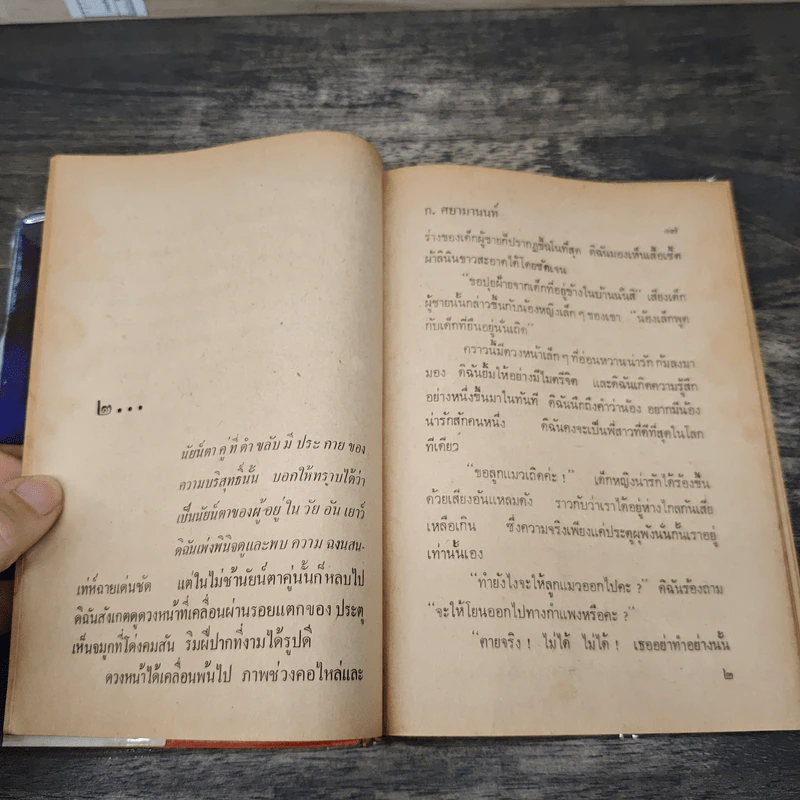 ๒...
นัยน์ตาคู่ที่ดำขลับมีประกายของ
ความบริสุทธิ์นั้น บอกให้ทราบได้ว่า
เป็นนัยน์ตาของผู้อยู่ในวัยอันเยาว์
ดิฉันเพ่งพินิจดูและพบความฉงนสน-
เท่ห์ฉายเด่นชัด แต่ในไม่ช้านัยน์ตาคู่นั้นก็หลบไป
ดิฉันสังเกตดูดวงหน้าที่เคลื่อนผ่านรอยแตกของประตู
เห็นจมูกที่โด่งคมสัน ริมฝีปากที่งามได้รูปดี
ดวงหน้าได้เคลื่อนพ้นไป ภาพช่วงคอไหล่และ
ก. ศยามานนท์
๑๗
ร่างของเด็กผู้ชายก็ปรากฏขึ้นในที่สุด ดิฉันมองเห็นเสื้อเชิ้ต
ผ้าลินินขาวสะอาดได้โดยชัดเจน
"ขอปุยฝ้ายจากเด็กที่อยู่ข้างในบ้านนั้นสิ" เสียงเด็ก
ผู้ชายนั้นกล่าวขึ้นกับน้องหญิงเล็กๆ ของเขา "น้องเล็กพูด
กับเด็กที่ยืนอยู่นั่นเถิด"
คราวนี้มีดวงหน้าเล็กๆ ที่อ่อนหวานน่ารัก ก้มลงมา
มอง ดิฉันยิ้มให้อย่างมีไมตรีจิต และดิฉันเกิดความรู้สึก
อย่างหนึ่งขึ้นมาในทันที ดิฉันนึกถึงคำว่าน้อง อยากมีน้อง
น่ารักสักคนหนึ่ง ดิฉันคงจะเป็นพี่สาวที่ดีที่สุดในโลก
ทีเดียว
"ขอลูกแมวเถิดค่ะ !" เด็กหญิงน่ารักได้ร้องขึ้น
ด้วยเสียงอันแหลมดัง ราวกับว่าเราได้อยู่ห่างไกลกันเสีย
เหลือเกิน ซึ่งความจริงเพียงแค่ประตูผุพังนั่นกั้นเราอยู่
เท่านั้นเอง
"ทำยังไงจะให้ลูกแมวออกไปคะ ?" ดิฉันร้องถาม
"จะให้โยนออกไปทางกำแพงหรือคะ ?"
"ตายจริง ! ไม่ได้ ไม่ได้ ! เธออย่าทำอย่างนั้น
๒